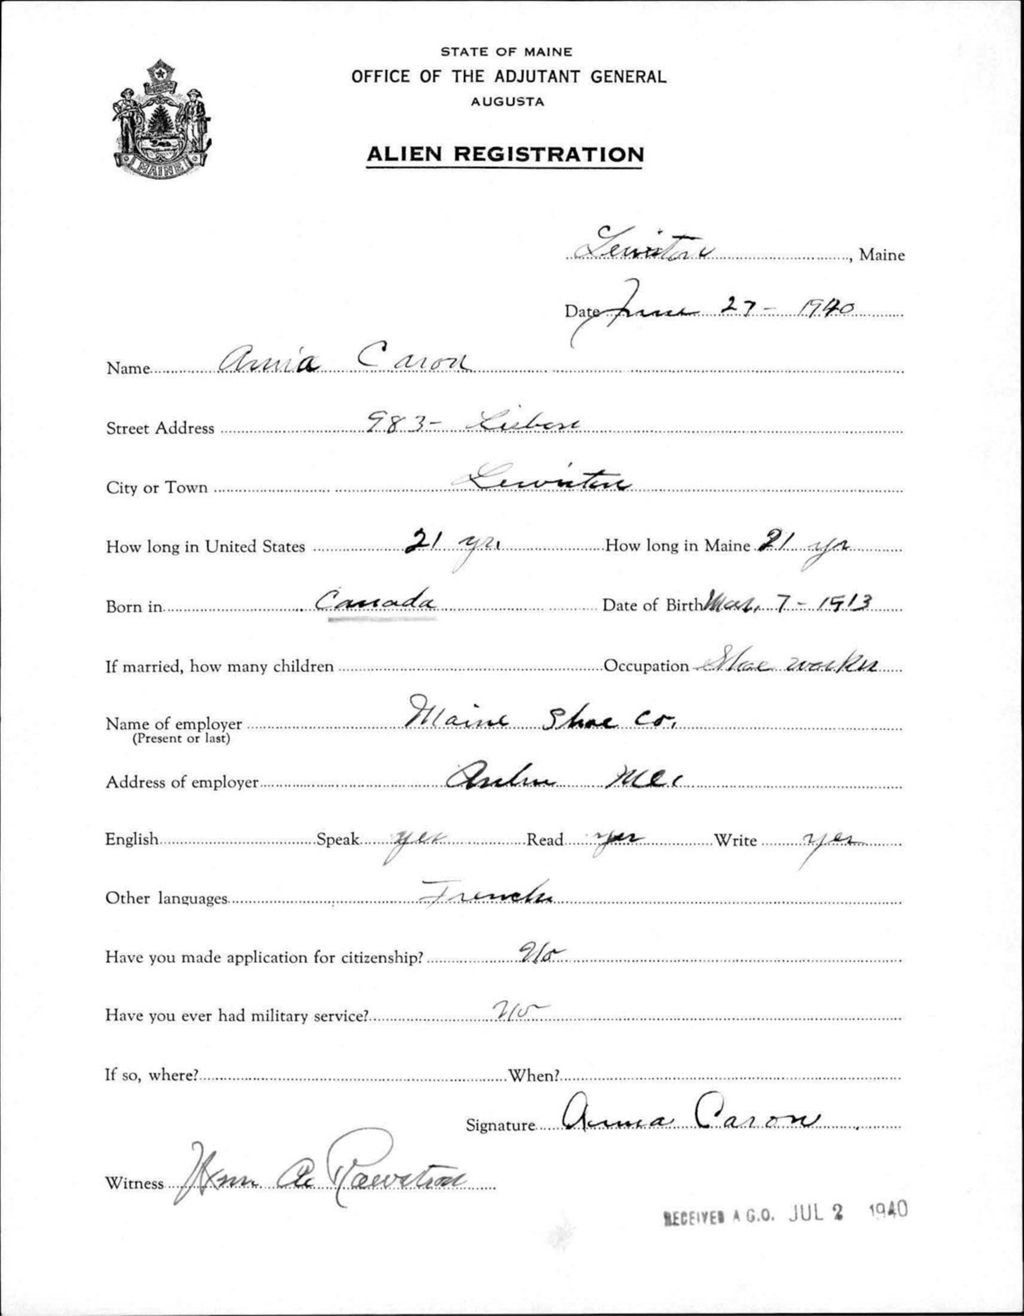 STATE OF MAINE
OFFICE OF THE ADJUTANT GENERAL
AUGUSTA
ALIEN REGISTRATION
MAINE
Lewiston, Maine
Date June 27 - 1940
Name Anna Caron
Street Address 983 - Lisbon
City or Town Lewiston
How long in United States 21 yr. How long in Maine 21 yr
Born in Canada Date of Birth Mar. 7 - 1913
If married, how many children Occupation Shoe worker
Name of employer Maine Shoe Co.
(Present or last)
Address of employer Auburn Me.
English Speak yes Read yes Write yes
Other languages French
Have you made application for citizenship? No
Have you ever had military service? No
If so, where? When?
Signature Anna Caron
Witness Wm A.
RECEIVED A.G.O. JUL 2 1940